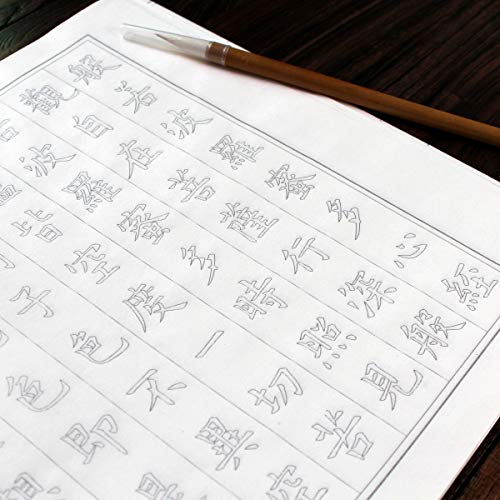 般若波羅蜜多心經
觀自在菩薩行深般
若波羅蜜多時照見
蘊皆空度一切苦
子色不異空
色即